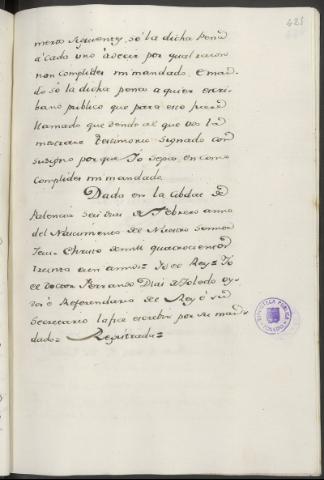 425
mero siguiente, só la dicha pena
á cada uno á decir por qual razon
non complides mi mandado. E man-
do só la dicha pena á quier escri-
bano publico que para esto fuere
llamado que dende al que vos la
mostrare testimonio signado con
susigno por que Yo sepa en como
complides mi mandado.
Dada en la Cibdat de
Palencia seis dias de Febrero anno
del Nacimiento de Nuestro Sennor
Jesu Christo de mill quatrocientos
treinta e un annos= Yo el Rey= Yo
el Doctor Ferrando Diaz de Toledo oy-
dor é Referendario del Rey é su
Secretario la fice escrebir por su man-
dado= Registrada=